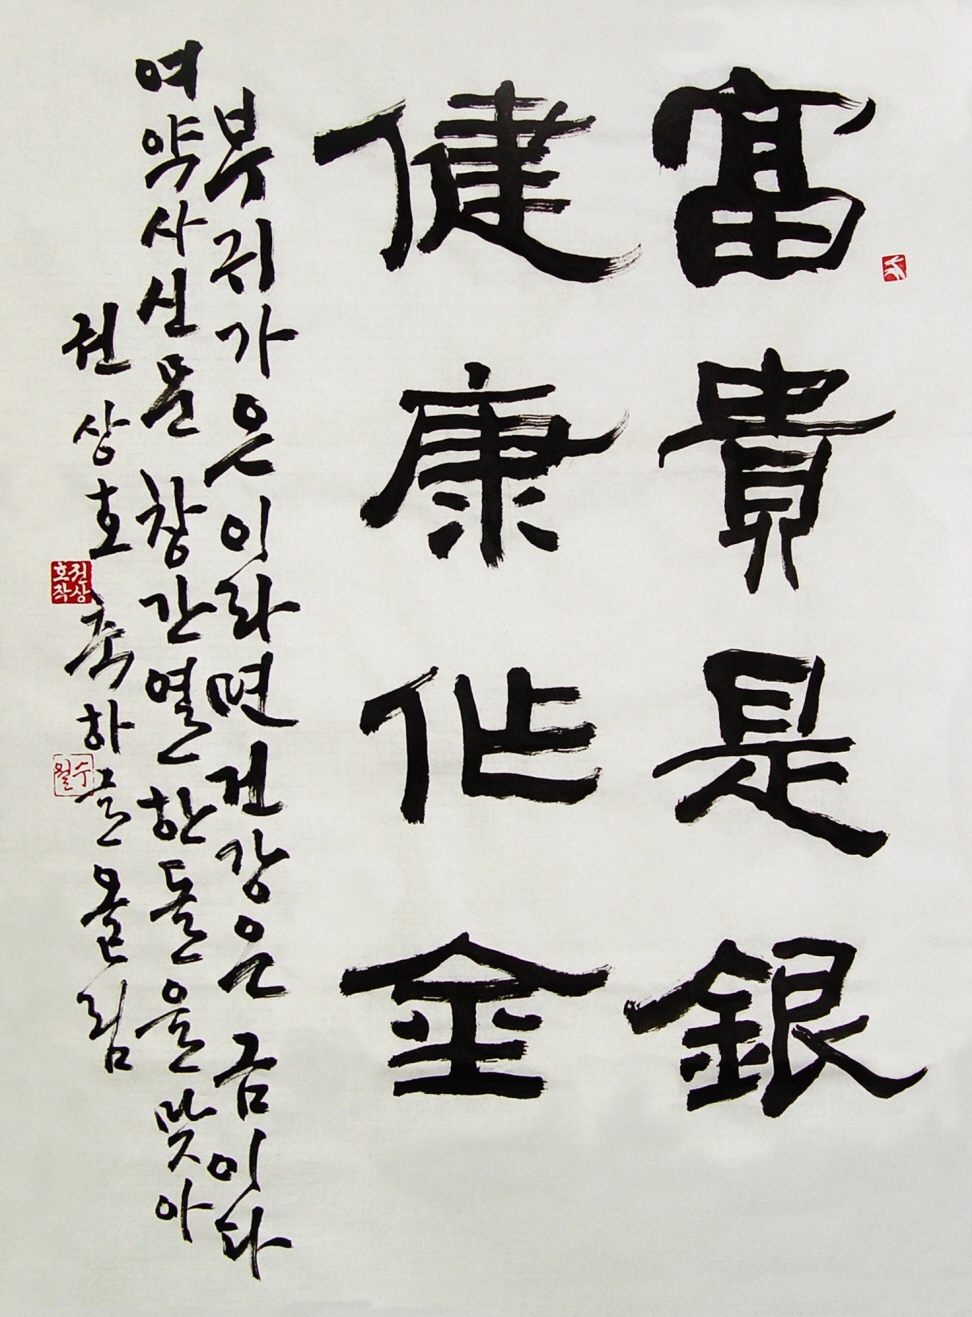 富貴是銀
健康作金
부귀가 은이라면 건강은 금이다
여약사신문 창간 열한돌을 맞아
권상호 축하글 올림
권상호작
수월